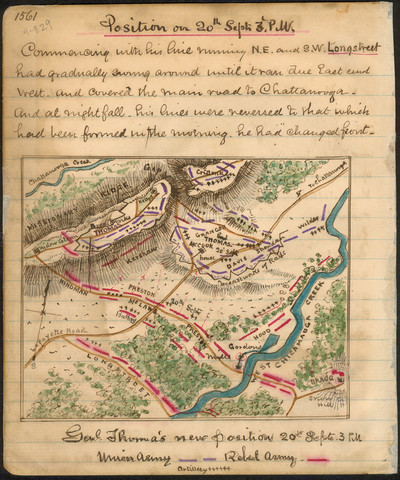 1561
Position on 20th Sept. 3. P.M.
Commencing with his line running N.E. and S.W. Longstreet
had gradually swung around until it ran due East and
West. and covered the main road to Chattanooga.
And at nightfall. his lines were reversed to that which
had been formed in the morning. he had "changed front.
Chattanooga Creek
MISSIONARY RIDGE
to Chattanooga
Wilder
GRANGER
and
THOMAS
McCOOK
house
DAVIS
Kershaw
HINDMAN
PRESTON
McLAWS
20th Sept.
Fayette Road
LONGSTREET
HOOD
Gordon's
Mills
WEST CHICKAMAUGA CREEK
BRAGG
Genl. Thomas's new position 20th Sept. 3 P.M
Union Army
Rebel Army
Artillery